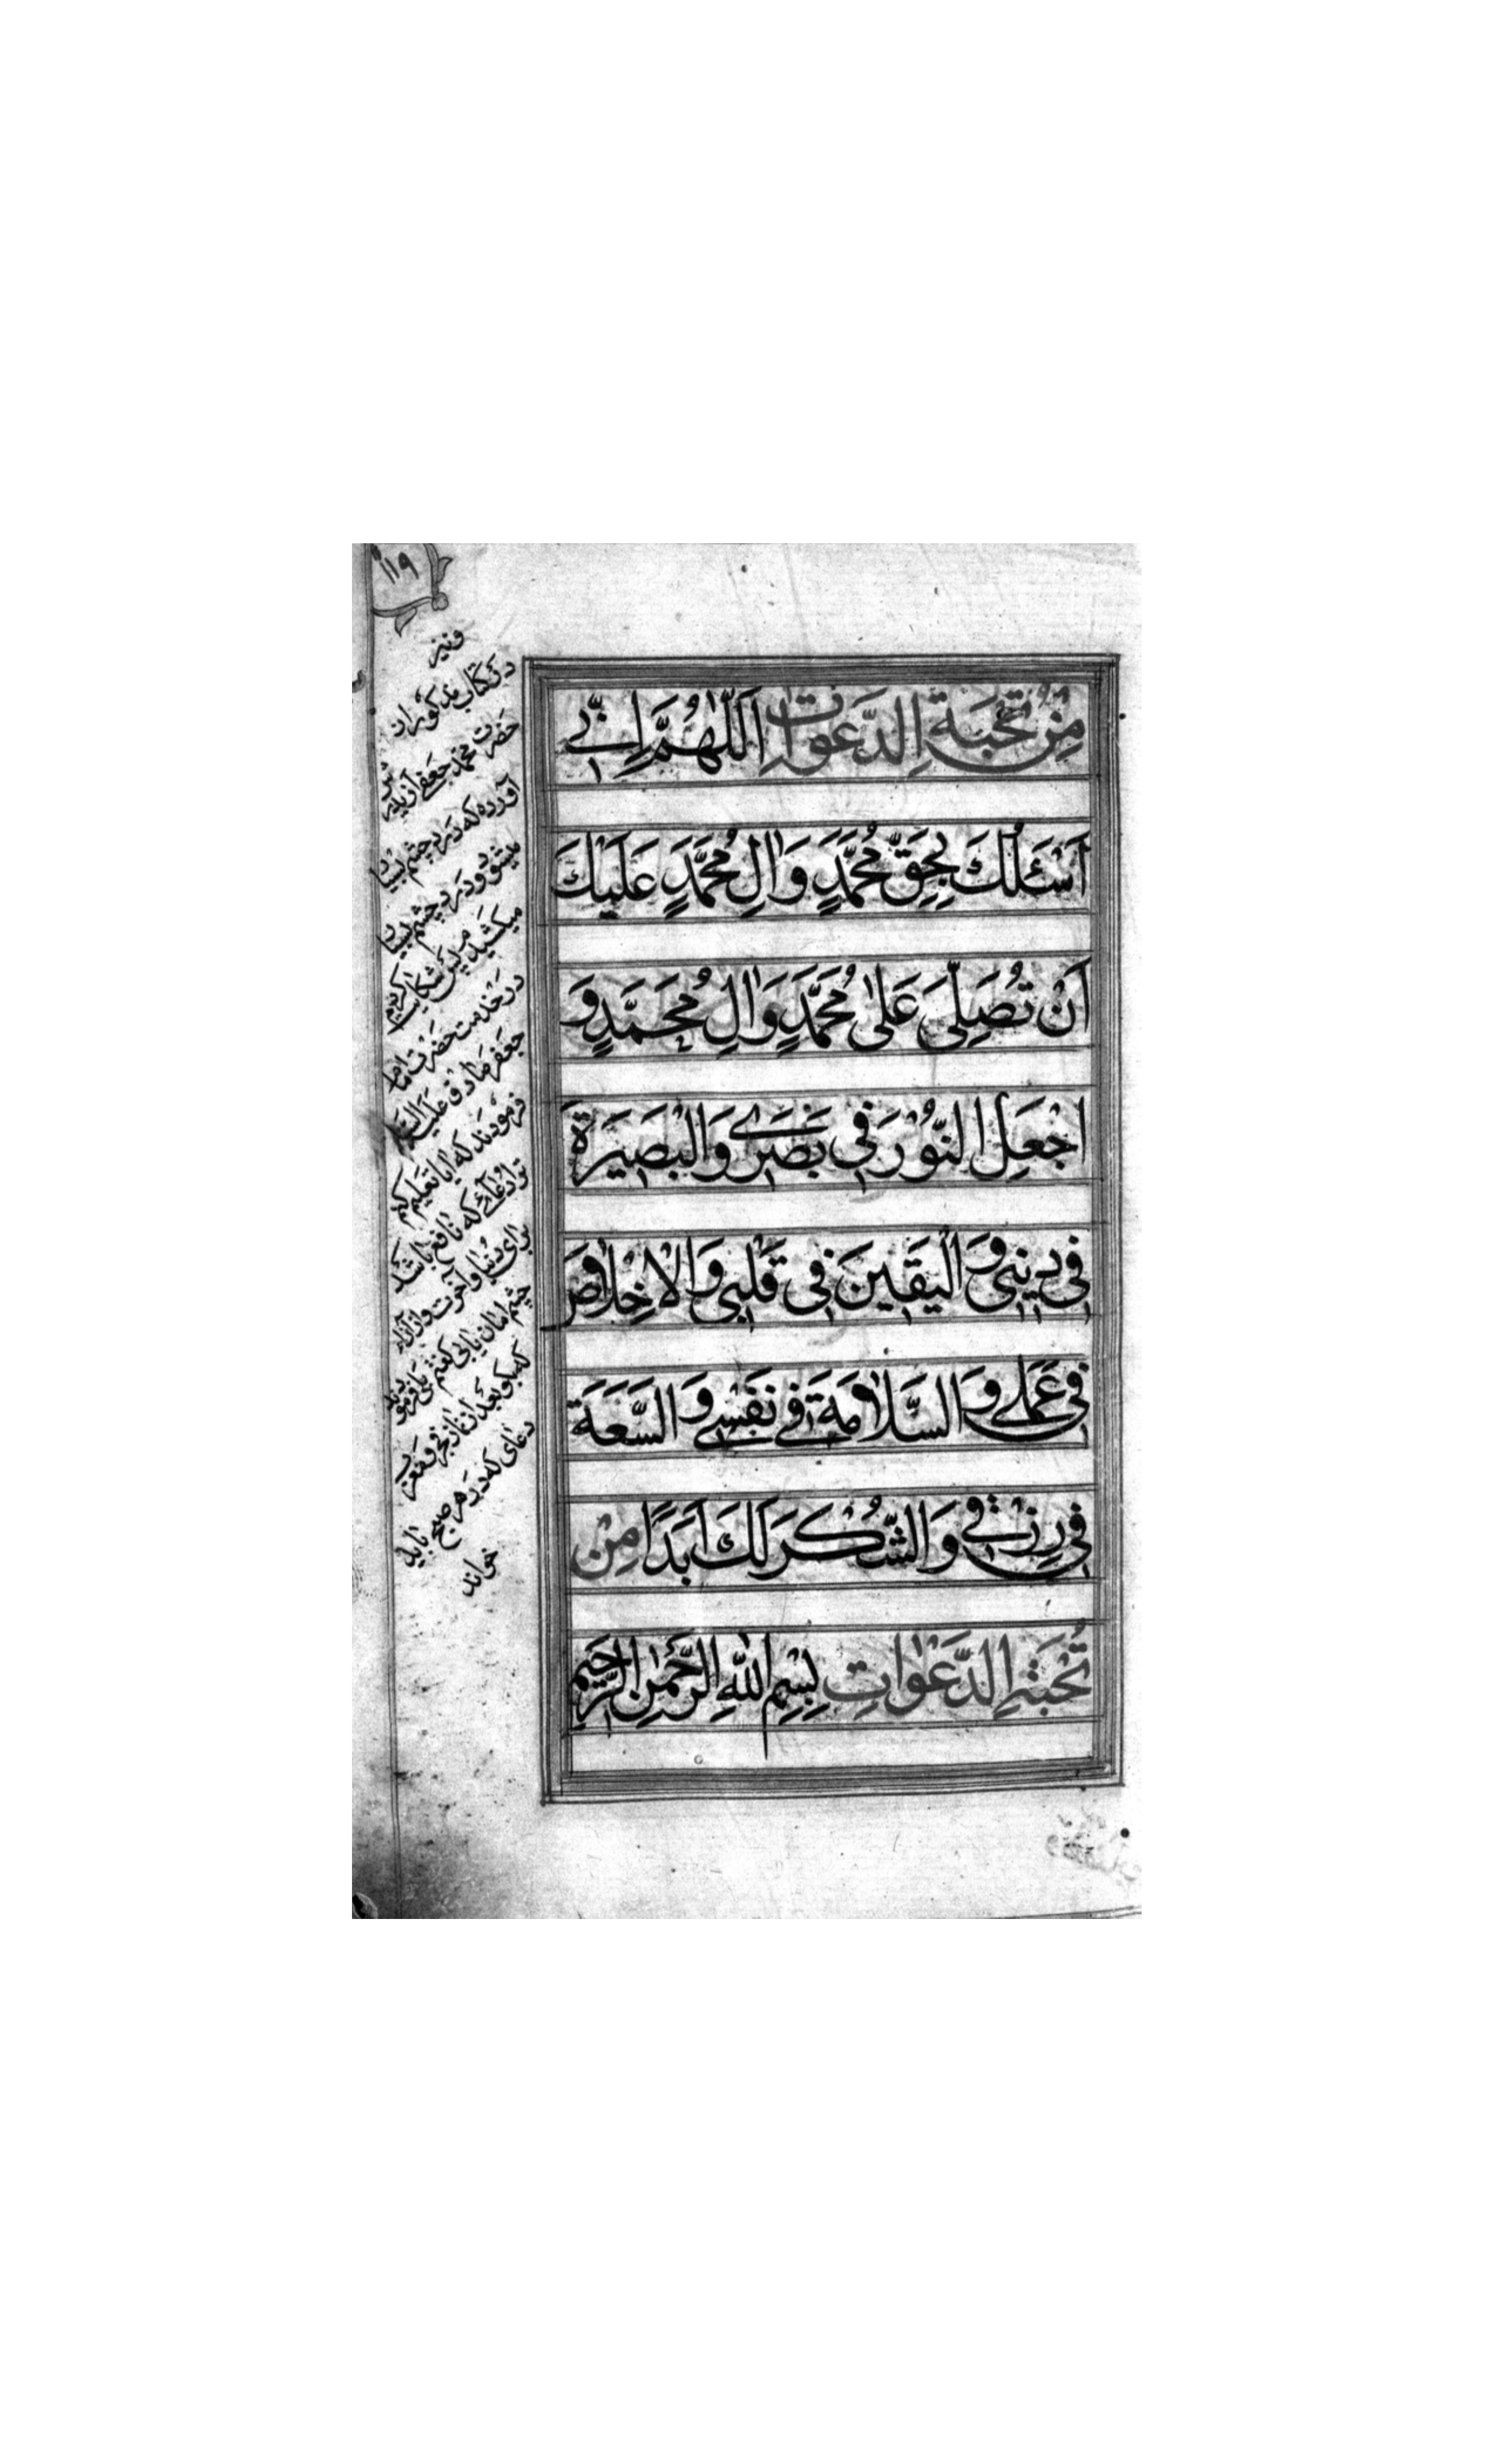 ۱۱۹
مِنْ نُخْبَةِ الدَّعَوَاتِ اَللّٰهُمَّ اِنّٖى
اَسْئَلُكَ بِحَقِّ مُحَمَّدٍ وَاٰلِ مُحَمَّدٍ عَلَيْكَ
اَنْ تُصَلِّىَ عَلٰى مُحَمَّدٍ وَاٰلِ مُحَمَّدٍ وَ
اجْعَلِ النُّوْرَ فٖى بَصَرٖى وَالْبَصٖيْرَةَ
فٖى دٖينٖى وَ الْيَقٖيْنَ فٖى قَلْبٖى وَ الْاِخْلَاصَ
فٖى عَمَلٖى وَ السَّلَامَةَ فٖى نَفْسٖى وَ السَّعَةَ
فٖى رِزْقٖى وَ الشُّكْرَ لَكَ اَبَدًا مِنْ
نُخْبَةِ الدَّعَوَاتِ بِسْمِ اللّٰهِ الرَّحْمٰنِ الرَّحٖيْمِ
ونیز
در کتاب مذکور از
حضرت محمد جعفی از پدرش
آورده که درد چشم بسیار
میشود و درد چشم بسیار
میکشیدم پس شکایت کردم
در خدمت حضرت امام
جعفر صادق علیه السلام
فرمودند که آیا تعلیم کنم
ترا دعائے که نافع باشد
برای دنیا و آخرت و از آزار
چشم امان یابی گفتم بلی فرمودند
که بگو بعد از نماز فجر و مغرب
دعای که در هر صبح باید
خواند